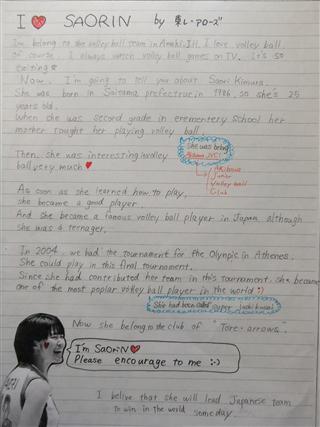 I ❤ SAORIN by 東レ・アローズ
Im belong to the volley ball team in Asahi.J.H. I love volley ball.
Of course I always watch volley ball games on TV. It's so
exiting
Now, I'm going to tell you about Saori Kimura.
She was born in Saitama prefecture in 1986, so she's 25
years old.
When she was second grade in erementery school her
mother sought her playing volley ball.
She was being
Akisawa JVC!
Akikawa
Junior
Volley ball
Club
Then, she was interesting in volley
ball very much ❤
As soon as she learned how to play,
she became a good player.
And she became a famous volley ball player in Japan, although
she was a teenager.
In 2004, we had the tournament for the Olympic in Athenes.
She could play in this final tournament.
Since she had contributed her team in this tournament, she became
one of the most poplar volley ball player in the world :)
She had been called super
Now she belong to the club of "Tore-arrows."
I'm SAORIN ❤
Please encourage to me :-)
I belive that she will lead Japanese team
to win in the world someday.